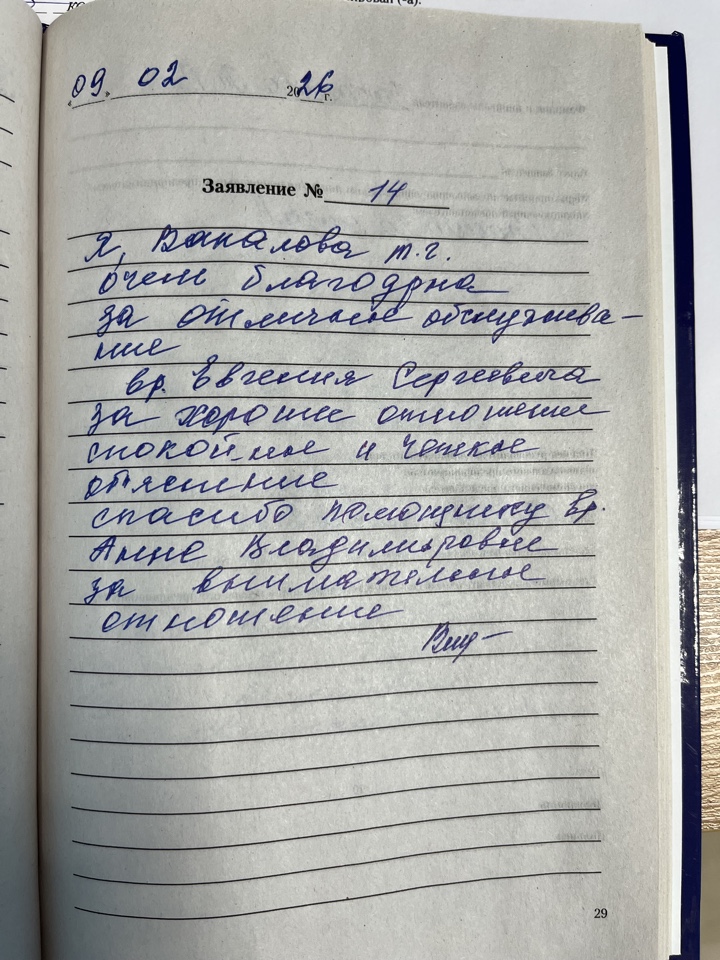 «09» 02 2026 г.
Заявление № 14
Я, Вакалова т.г.
очень благодрна
за отличное обслужева-
ние
вр. Евгения Сергеевича
за хорошие отношение
спокойное и четкое
отяснение
спасибо помощнику вр.
Анне Владимировне
за внимательное
отношение
29